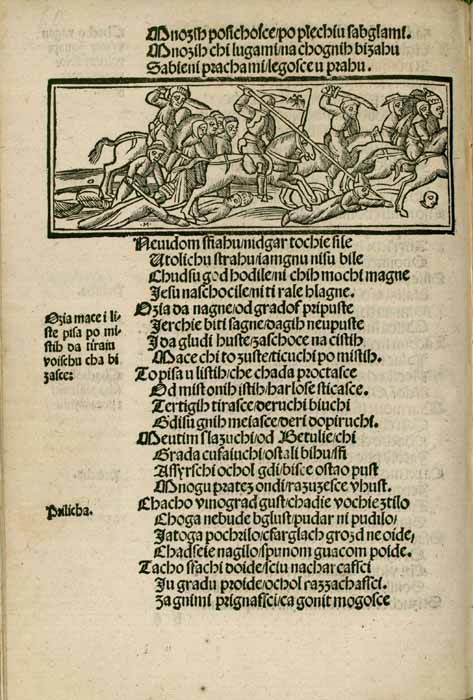 Mnozih posichosce/po plechiu sabglami.
Mnozih chi lugami/na chognih bizahu
Sabieni prachami/legosce u prahu.
Neuidom stiahu/nidgar tochie sile
Utolichu strahu/iamgnu nisu bile
Chudsu god hodile/ni chih mochi magne
Jesu naschocile/ni ti rale hlagne.
Ozia da nagne/od gradof pripuste
Jerchie biti sagne/dagih neupuste
Ida gludi huste/zaschoce na cistih
Mace chi to zuste/ticuchi po mistih.
To pisa u listih/che chada proctasce
Od mist onih istih/harlose sticasce.
Tertigih tirasce/deruchi biuchi
Gdisu gnih meiasce/deri dopiruchi.
Meutim slazuchi/od Betulie/chi
Grada cufaiuchi/ostali bihu/sti
Assyrschi ochol gdi/bisce ostao pust
Mnogu pratez ondi/razuzesce vhust.
Chacho vinograd gust/chadie vochie ztilo
Choga nebude bglust/pudar ni pudilo/
Jatoga pochrilo/cfarglach grozd ne oide/
Chadscie nagilo/spunom guacom poide.
Tacho sfachi doide/sciu nacharcassci
Ju gradu proide/ochol razzachassci.
Za gnimi prignassci/ca gonit mogosce
Ozia mace i li-
ste pisa po mi-
stih da tiraiu
voischu cha bi
zasce:
Prilicha.
·M·